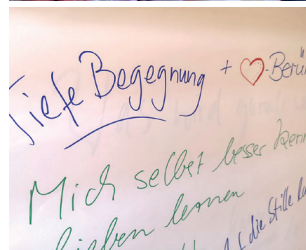 Tiefe Begegnung + ♡-Berü
Mich selbst besser kenn
lieben lernen
die Stille